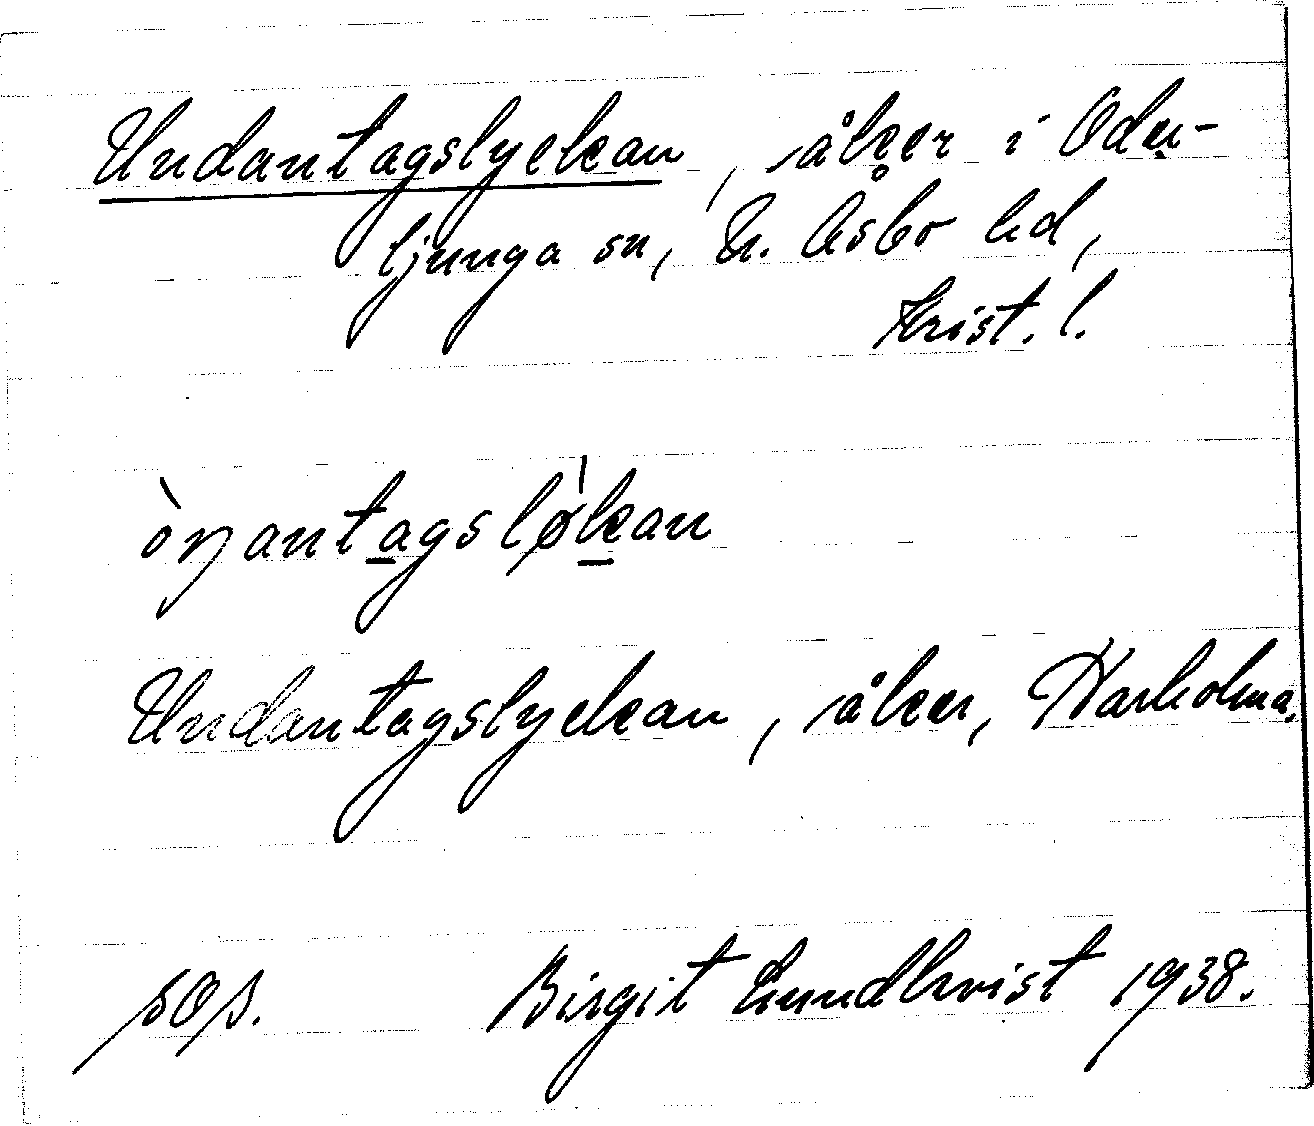 Undantagslyckan, åker i Oder-
ljunga sn, N. Åsbo hd,
Krist. l.
òŋantagsløkan
Undantagslyckan, åker, Harholma.
sOs. Birgit Lundkvist 1938.